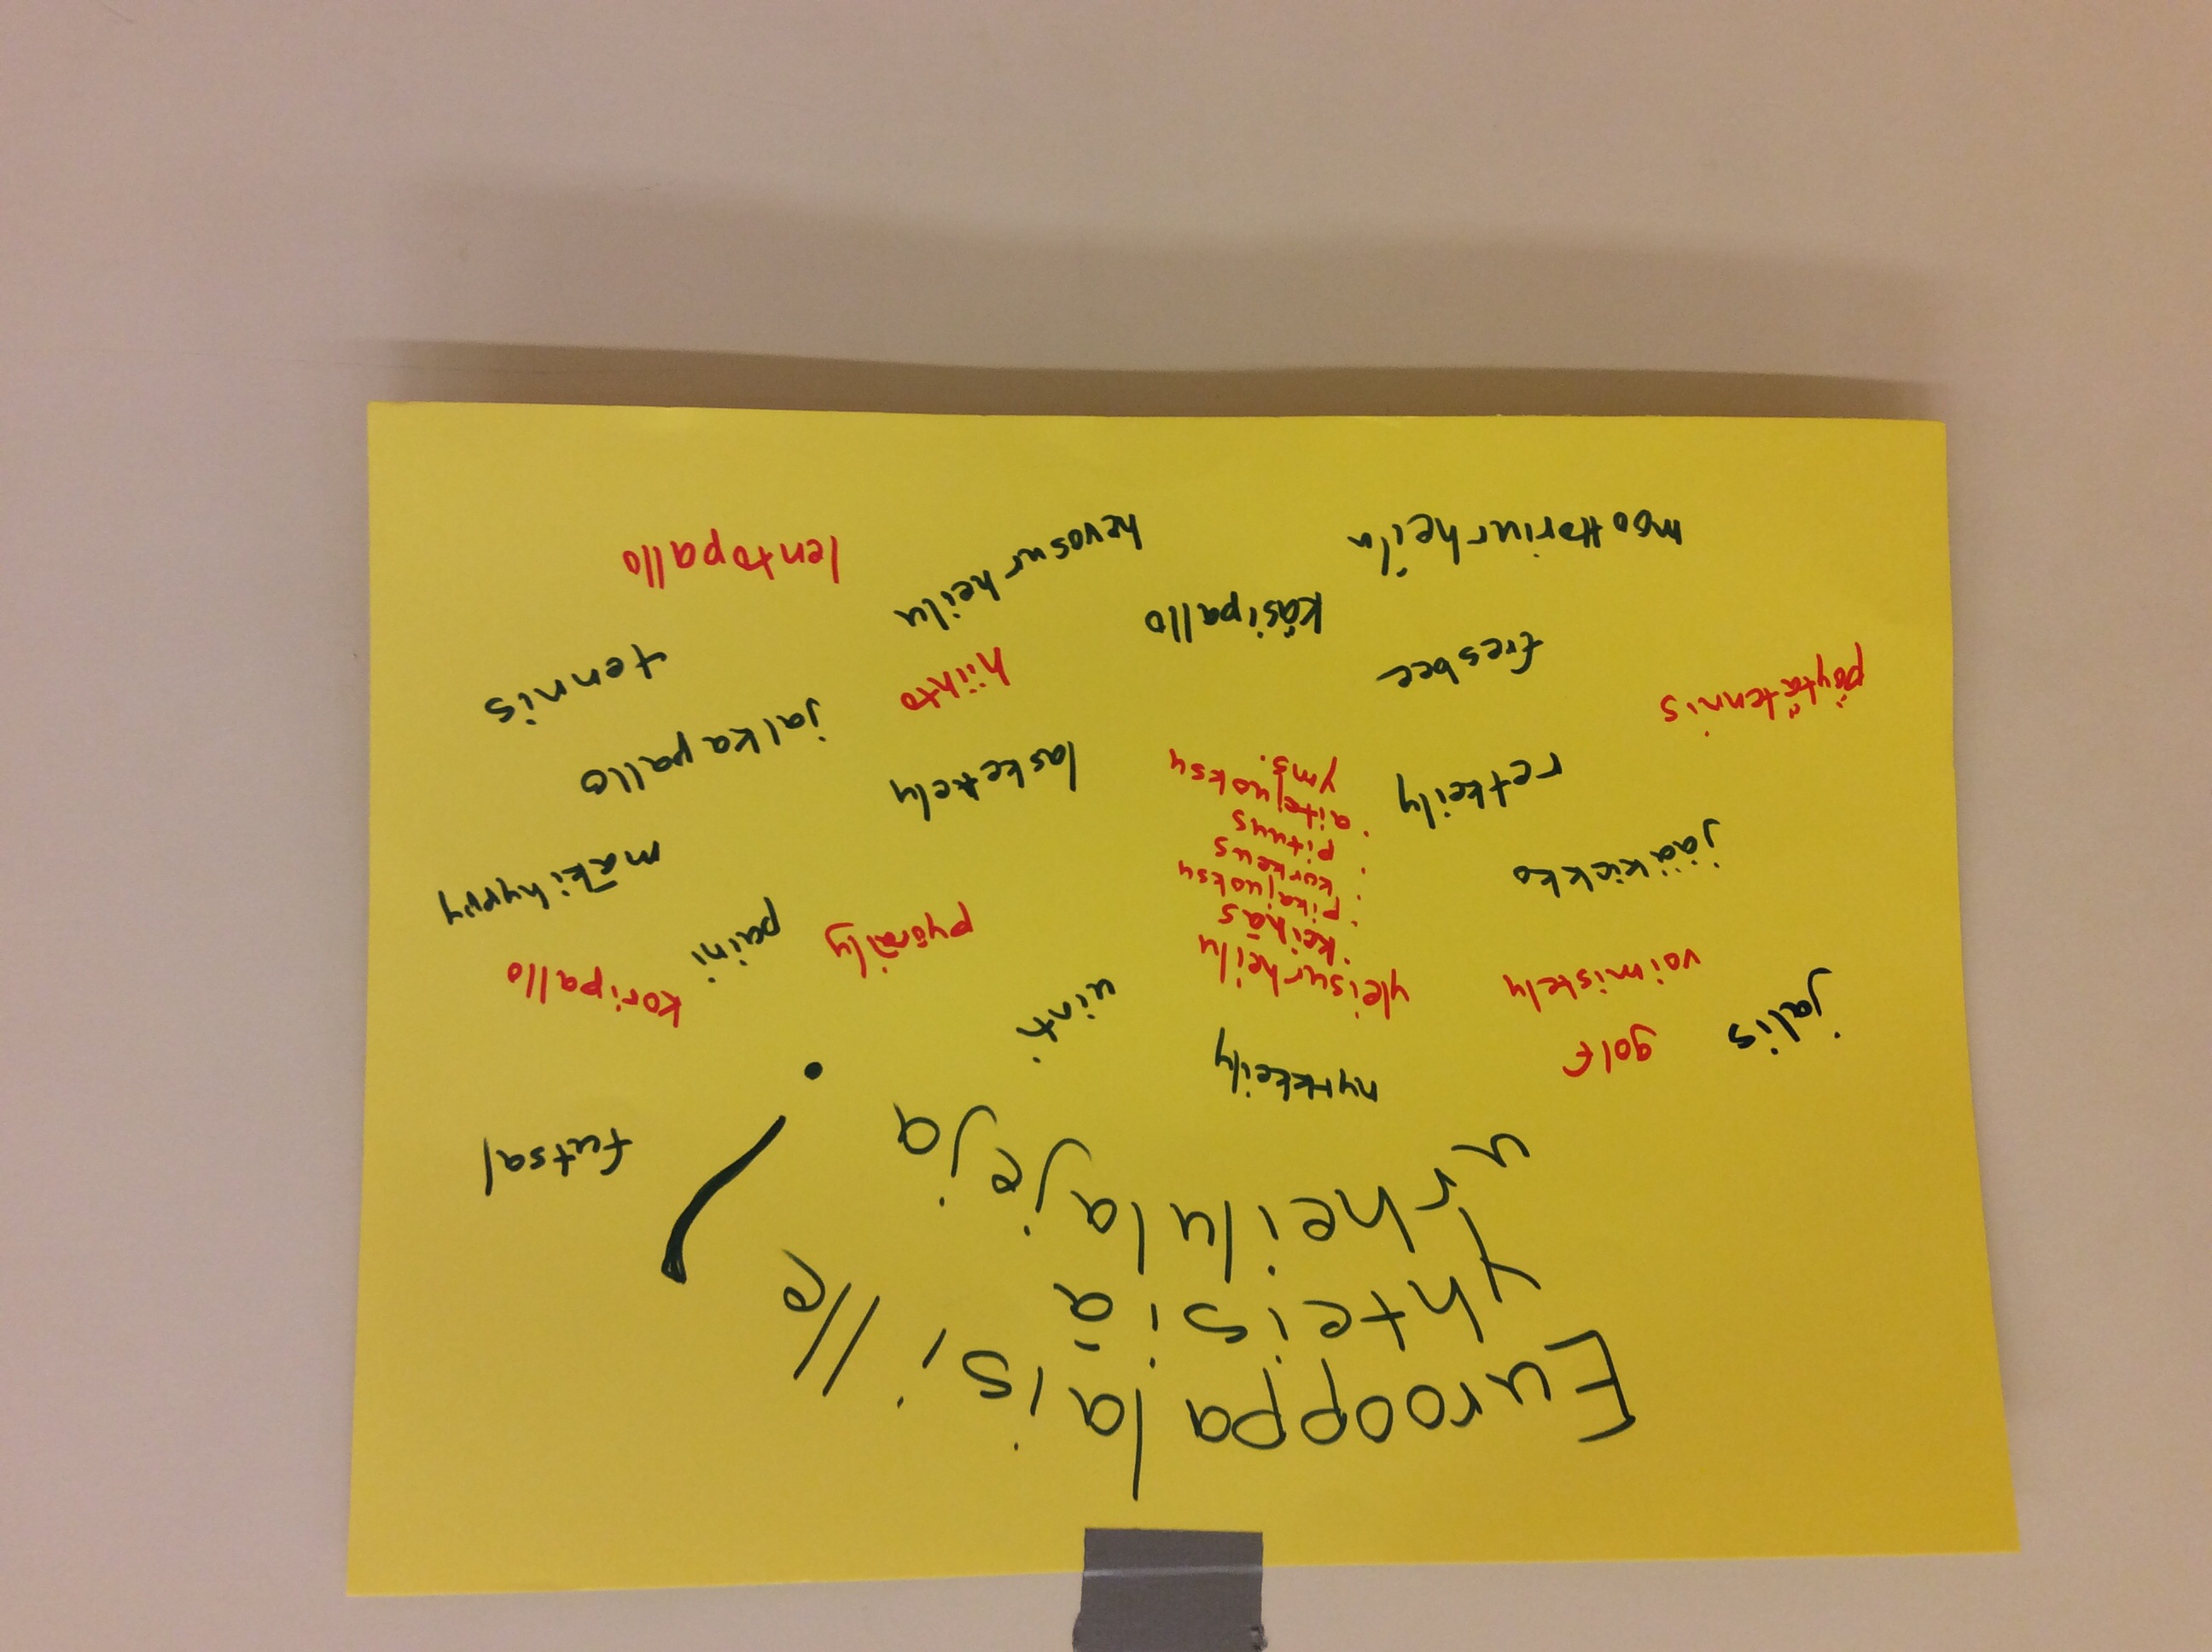 Eurooppalaisille
yhteisiä
urheilulajeja !
futsal
nyrkkeily
golf
jalis
uinti
koripallo
paini
pyöräily
yleisurheilu
keihäs
· pikajuoksu
· korkeus
· pituus
· aitajuoksu
yms.
voimistelu
jääkiekko
mäkihyppy
laskettelu
retkeily
jalkapallo
hiihto
fresbee
pöytätennis
tennis
käsipallo
hevosurheilu
lentopallo
moottoriurheilu